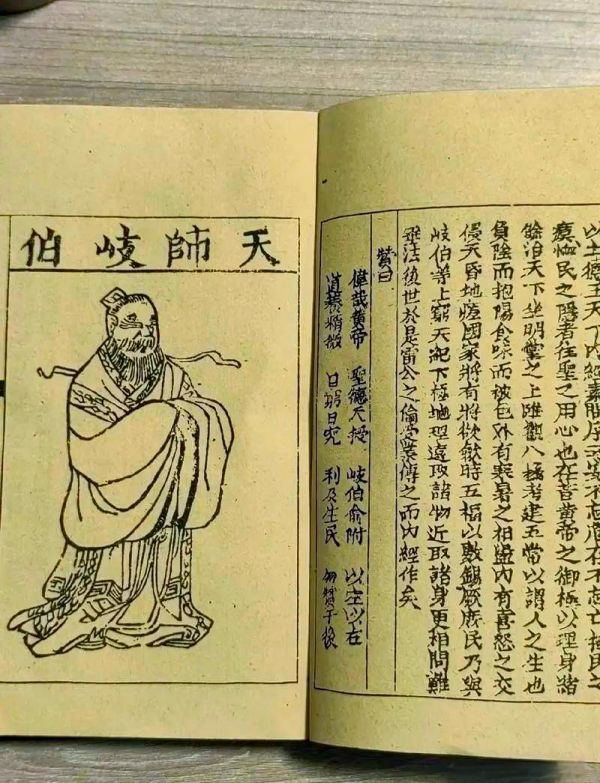 以土德王天下内經素問序云安不忘危存不忘亡民之
瘼恤民之隱者往聖之用心也在昔黄帝之御極以理身諸
餘治天下坐明堂之上臨觀八極考建五常以謂人之生也
負陰而抱陽食味而被色外有寒暑之相盪內有喜怒之交
侵夭昏地瘥國家將有將欲歛時五福以敷錫厥庶民乃與
岐伯等上窮天紀下極地理遠取諸物近取諸身更相問難
垂法後世於是雷公之倫受業傳之而内經作矣
贊曰
偉哉黄帝 聖德天授 岐伯俞附 以以在
道養精微 日窮日究 利及生民 勿替于後
天師岐伯